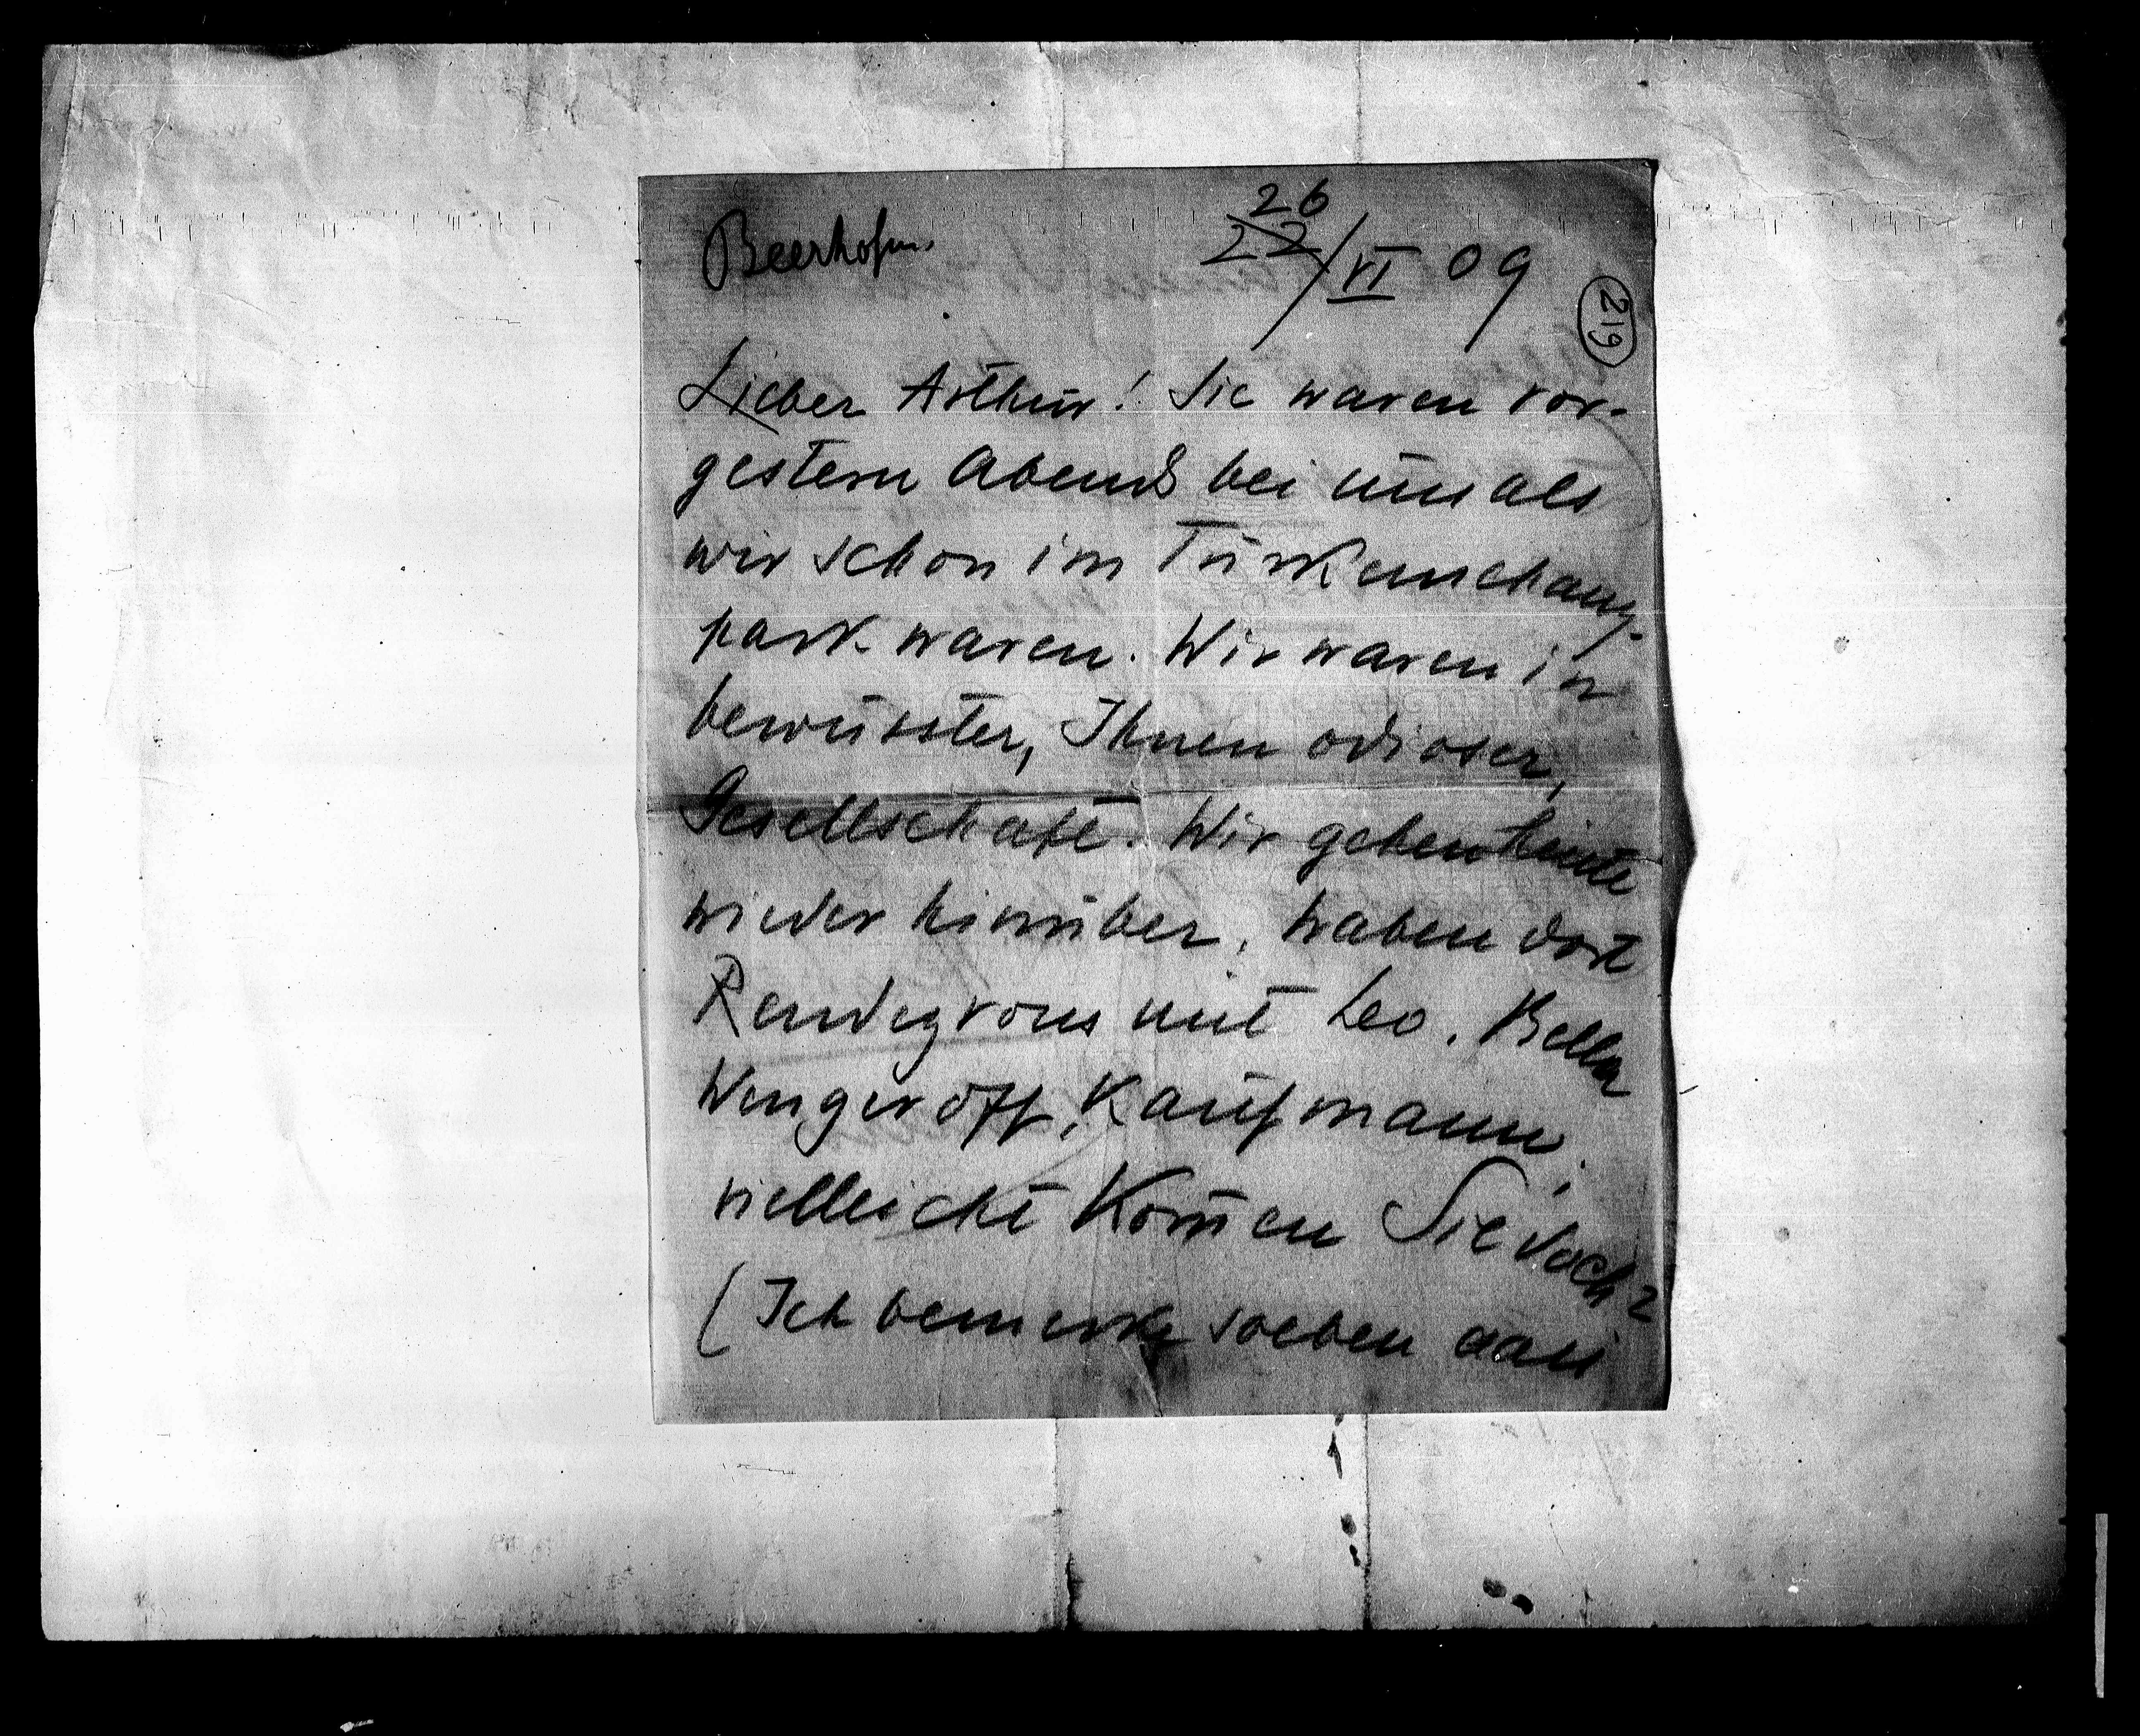 Beerhofmn.
26
22/VI 09
219
Lieber Arthur! Sie waren vor-
gestern Abends bei uns als
wir schon im Türkenschanz-
park waren. Wir waren in
bewusster, Ihnen odioser,
Gesellschaft. Wir gehen heute
wieder hinüber, haben dort
Rendezvous mit Leo, Bella
Wengeroff, Kaufmann;
vielleicht kom̄en Sie doch?
(Ich bemerke soeben dass